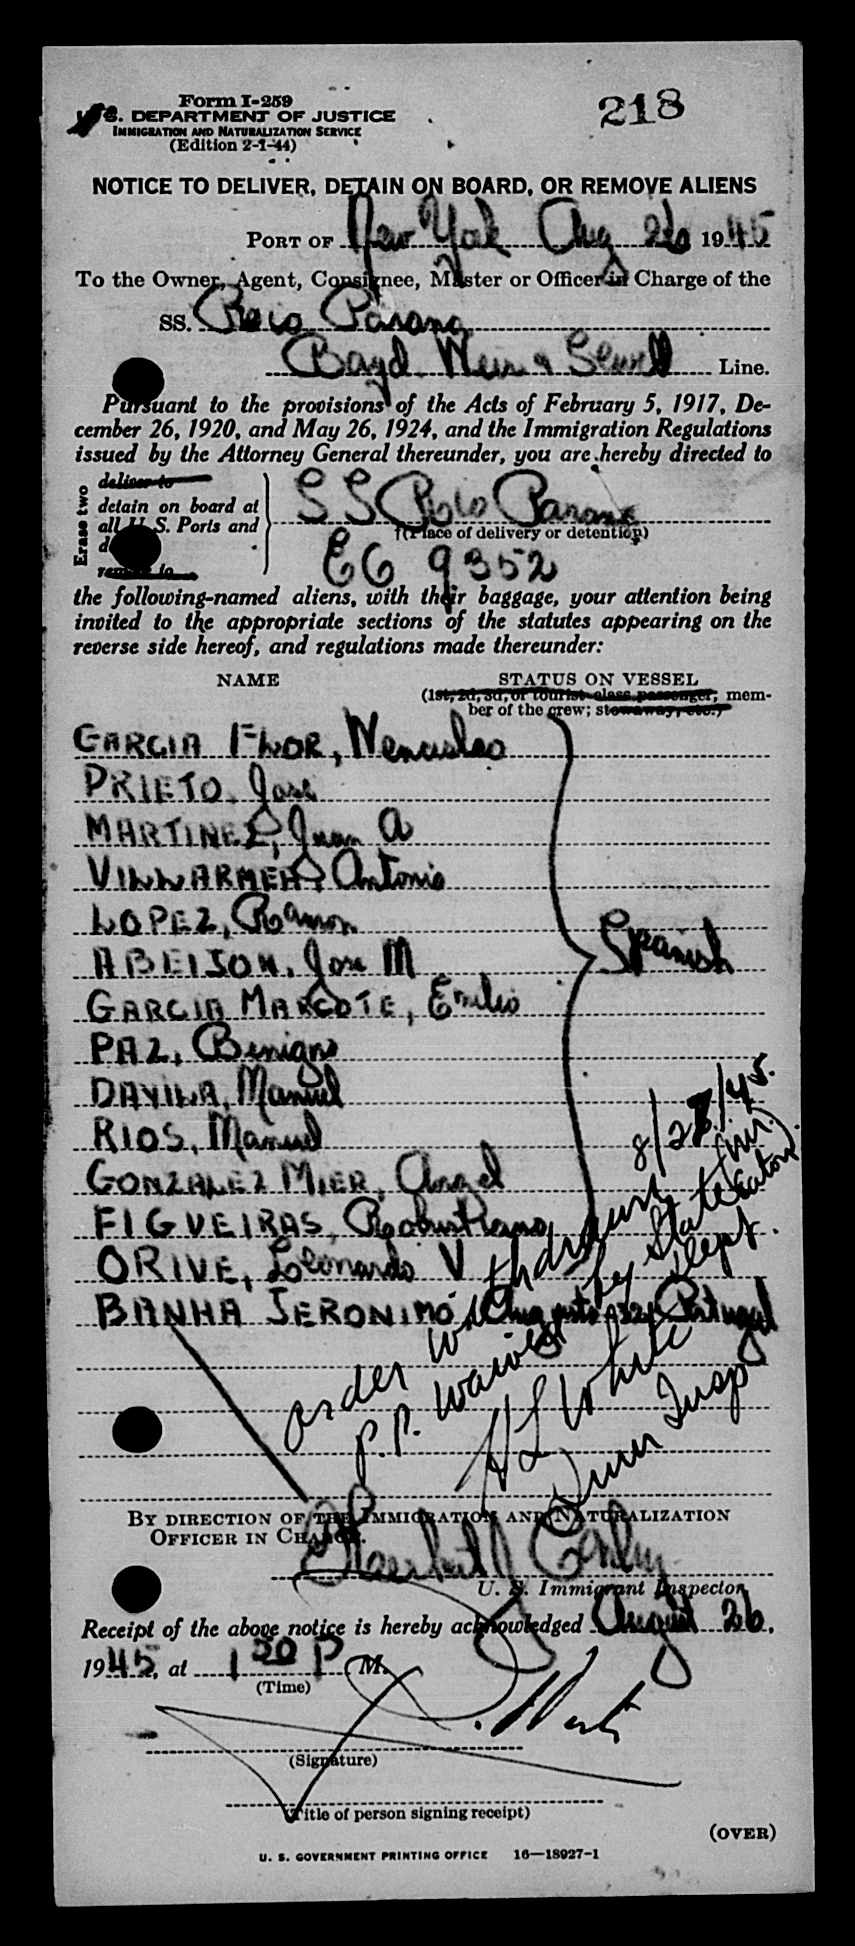 Form I-259
U.S. DEPARTMENT OF JUSTICE
IMMIGRATION AND NATURALIZATION SERVICE
(Edition 2-1-44)
218
NOTICE TO DELIVER, DETAIN ON BOARD, OR REMOVE ALIENS
PORT OF New York Aug 26 1945
To the Owner, Agent, Consignee, Master or Officer in Charge of the
SS. Parana
Boyd Weir & Sewell Line.
Pursuant to the provisions of the Acts of February 5, 1917, De-
cember 26, 1920, and May 26, 1924, and the Immigration Regulations
issued by the Attorney General thereunder, you are hereby directed to
Erase two
deliver to
detain on board at
all U.S. Ports and
remove to
SS Parana
(Place of delivery or detention)
EG 9352
the following-named aliens, with their baggage, your attention being
invited to the appropriate sections of the statutes appearing on the
reverse side hereof, and regulations made thereunder:
NAME STATUS ON VESSEL
(1st, 2d, 3d, or tourist-class passenger; mem-
ber of the crew; stowaway, etc.)
GARCIA FLOR, Wenceslao
PRIETO, Jose
MARTINEZ, Juan A
VILLARMEA, Antonio
LOPEZ, Ramon
ABEIJON, Jose M
Spanish
GARCIA MARCOTE, Emilio
PAZ, Benigno
DAVILA, Manuel
RIOS, Manuel
GONZALEZ MIER, Angel
FIGVEIRAS, Robustiano
ORIVE, Leonardo V
BANHA JERONIMO, Augusto 32 Portugal
order withdrawn 8/28/45.
P.P. waived by State Dept. (Mr. Eaton).
H L White
Imm Insp
BY DIRECTION OF THE IMMIGRATION AND NATURALIZATION
OFFICER IN CHARGE.
U. S. Immigrant Inspector
Receipt of the above notice is hereby acknowledged August 26,
1945, at 1 30 P M.
(Time)
(Signature)
(Title of person signing receipt)
(OVER)
U. S. GOVERNMENT PRINTING OFFICE 16—18927-1